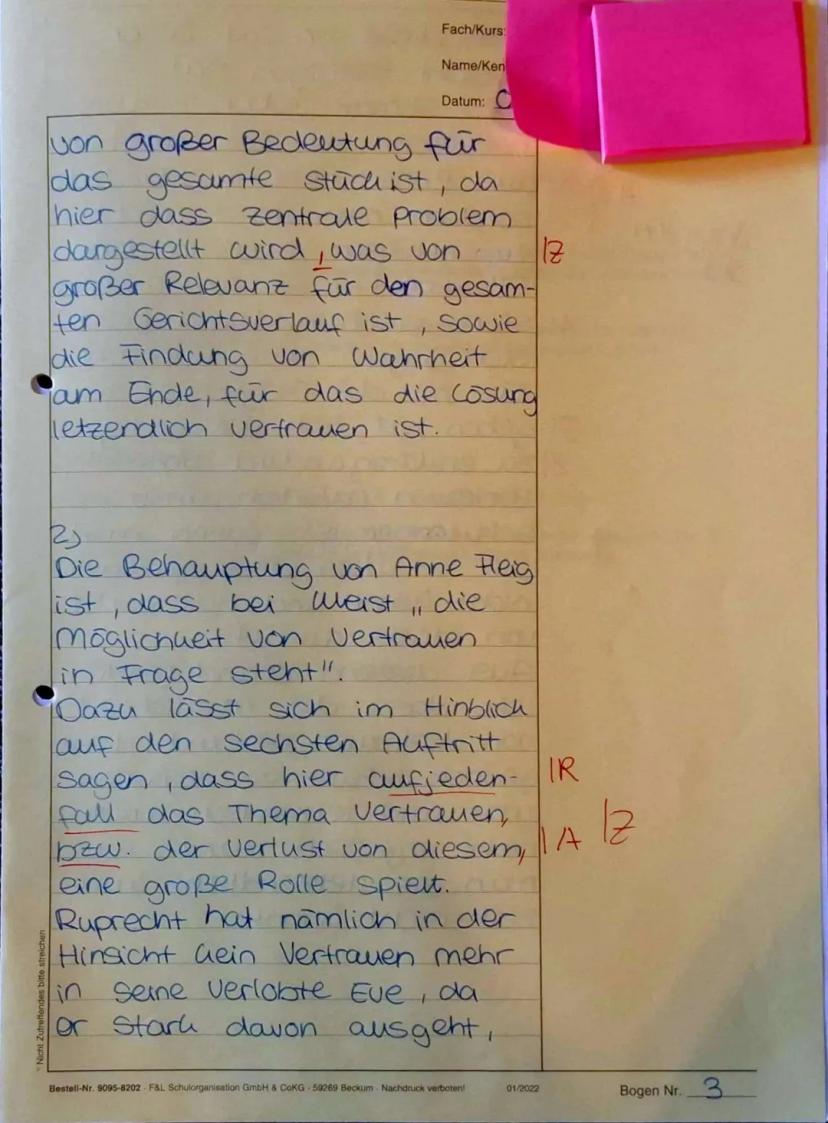 Fach/Kurs:
Name/Ken
Datum:
von großer Bedeutung für
das gesamte Stück ist, da
hier dass zentrale Problem
dargestellt wird, was von |Z
großer Relevanz für den gesam-
ten Gerichtsverlauf ist, sowie
die Findung von Wahrheit
am Ende, für das die Lösung
letzendlich Vertrauen ist.
2)
Die Behauptung von Anne Fleig
ist, dass bei Kleist „die
Möglichkeit von Vertrauen
in Frage steht".
Dazu lässt sich im Hinblick
auf den sechsten Auftritt
sagen, dass hier aufjeden- |R
fall das Thema Vertrauen, |Z
bzw. der Verlust von diesem, |A
eine große Rolle spielt.
Ruprecht hat nämlich in der
Hinsicht kein Vertrauen mehr
in seine Verlobte Eve, da
er stark davon ausgeht,
*) Nicht Zutreffendes bitte streichen
Bestell-Nr. 9095-8202 · F&L Schulorganisation GmbH & CoKG · 59269 Beckum · Nachdruck verboten! 01/2022 Bogen Nr. 3